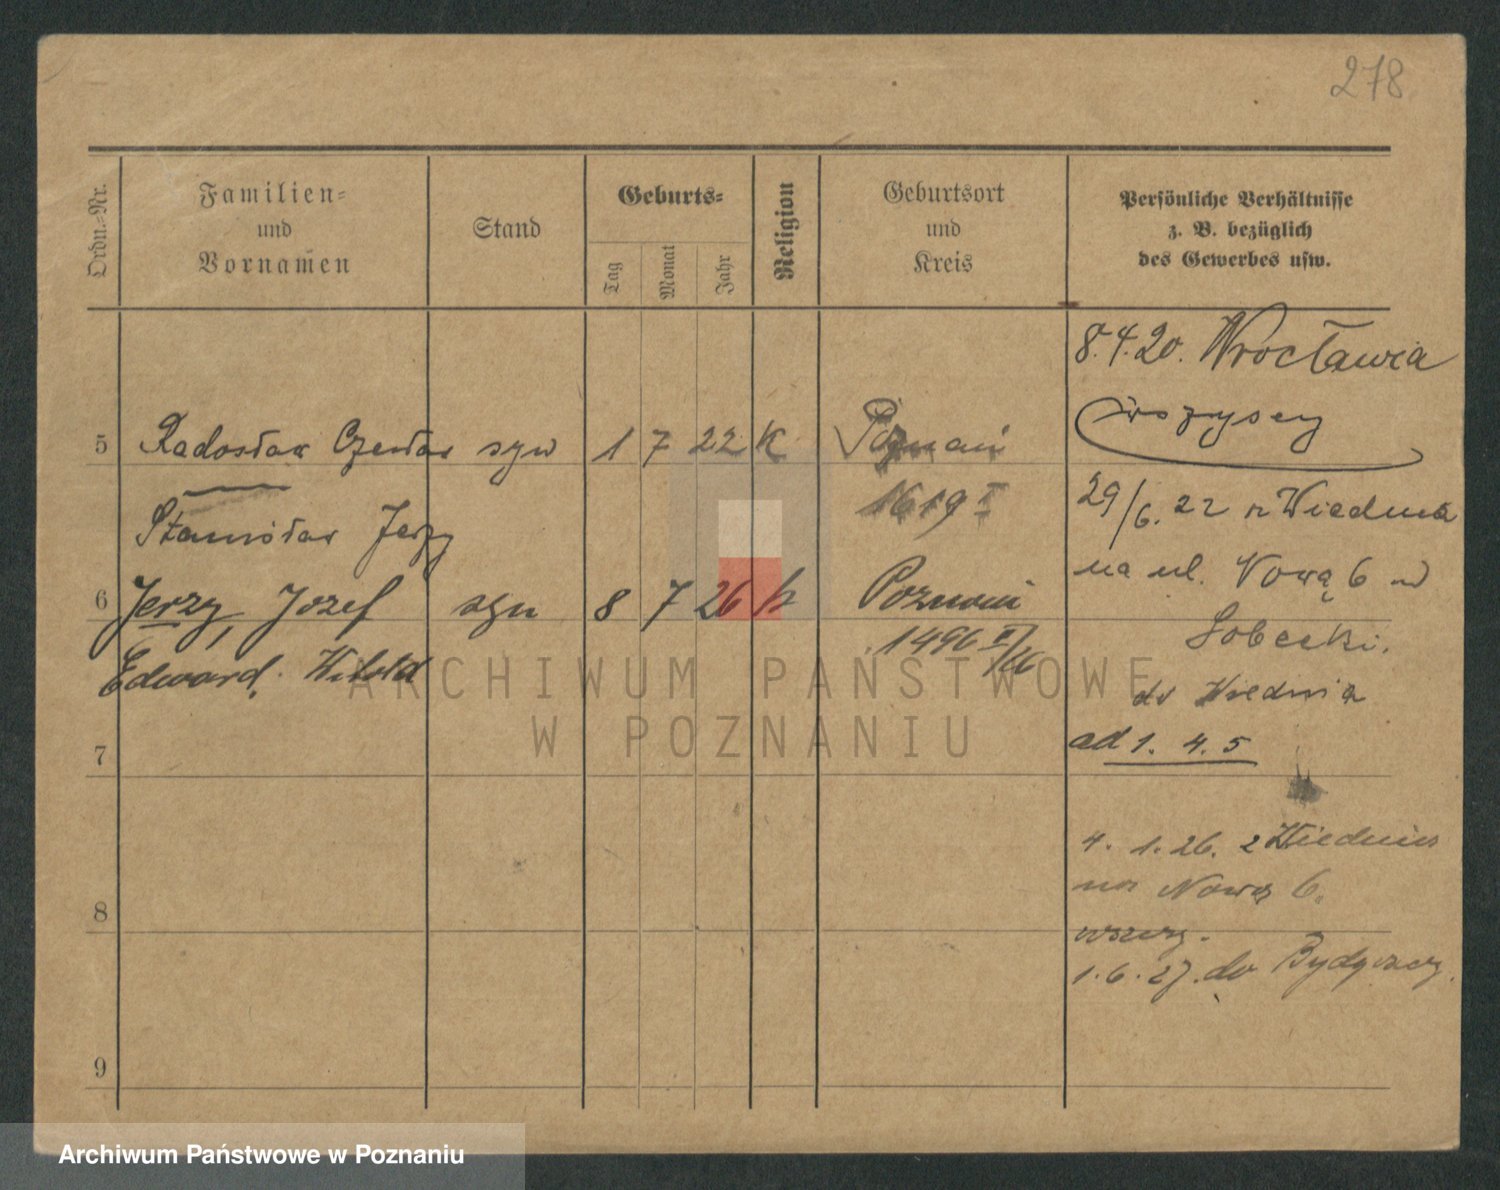 278
Ordn.-Nr.
Familien-
und
Vornamen
Stand
Geburts-
Tag
Monat
Jahr
Religion
Geburtsort
und
Kreis
Persönliche Verhältnisse
z. B. bezüglich
des Gewerbes usw.
8.4.20. Wrocławia
wszyscy
5 Radosław Czesław syn 1 7 22 K Poznań
1619 I
29/6. 22 z Wiednia
Stanisław Jerzy
na ul. Nową 6 u
6 Jerzy, Józef syn 8 7 26 k Poznań
1496 II/26
Edward, Witold
Sobecki.
do Wiednia
ad 1. 4. 5
7
4. 1. 26. z Wiednia
na Nową 6.
8
wszyscy.
1. 6. 27. do Bydgoszczy.
9
ARCHIWUM PAŃSTWOWE
W POZNANIU
Archiwum Państwowe w Poznaniu